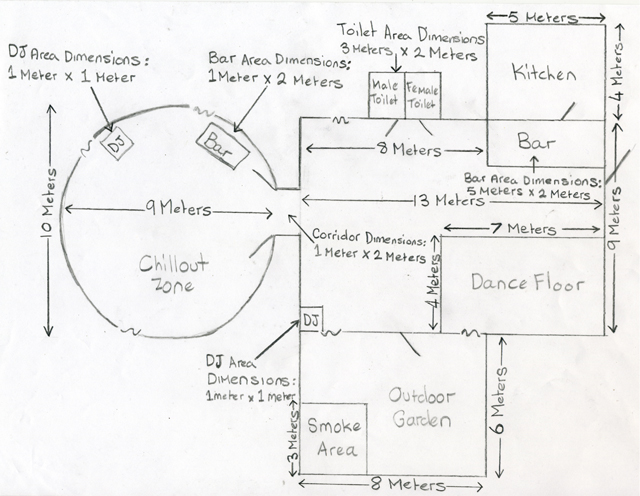 DJ Area Dimensions:
1 Meter x 1 Meter
Bar Area Dimensions:
1 Meter x 2 Meters
Toilet Area Dimensions
3 Meters x 2 Meters
5 Meters
Male
Toilet
Female
Toilet
Kitchen
4 Meters
DJ
Bar
8 Meters
Bar
Bar Area Dimensions:
5 Meters x 2 Meters
10 Meters
9 Meters
13 Meters
9 Meters
Corridor Dimensions:
1 Meter x 2 Meters
7 Meters
4 Meters
Chillout
Zone
Dance Floor
DJ
DJ Area
DIMENSIONS:
1 meter x 1 meter
Outdoor
Garden
6 Meters
3 Meters
Smoke
Area
8 Meters